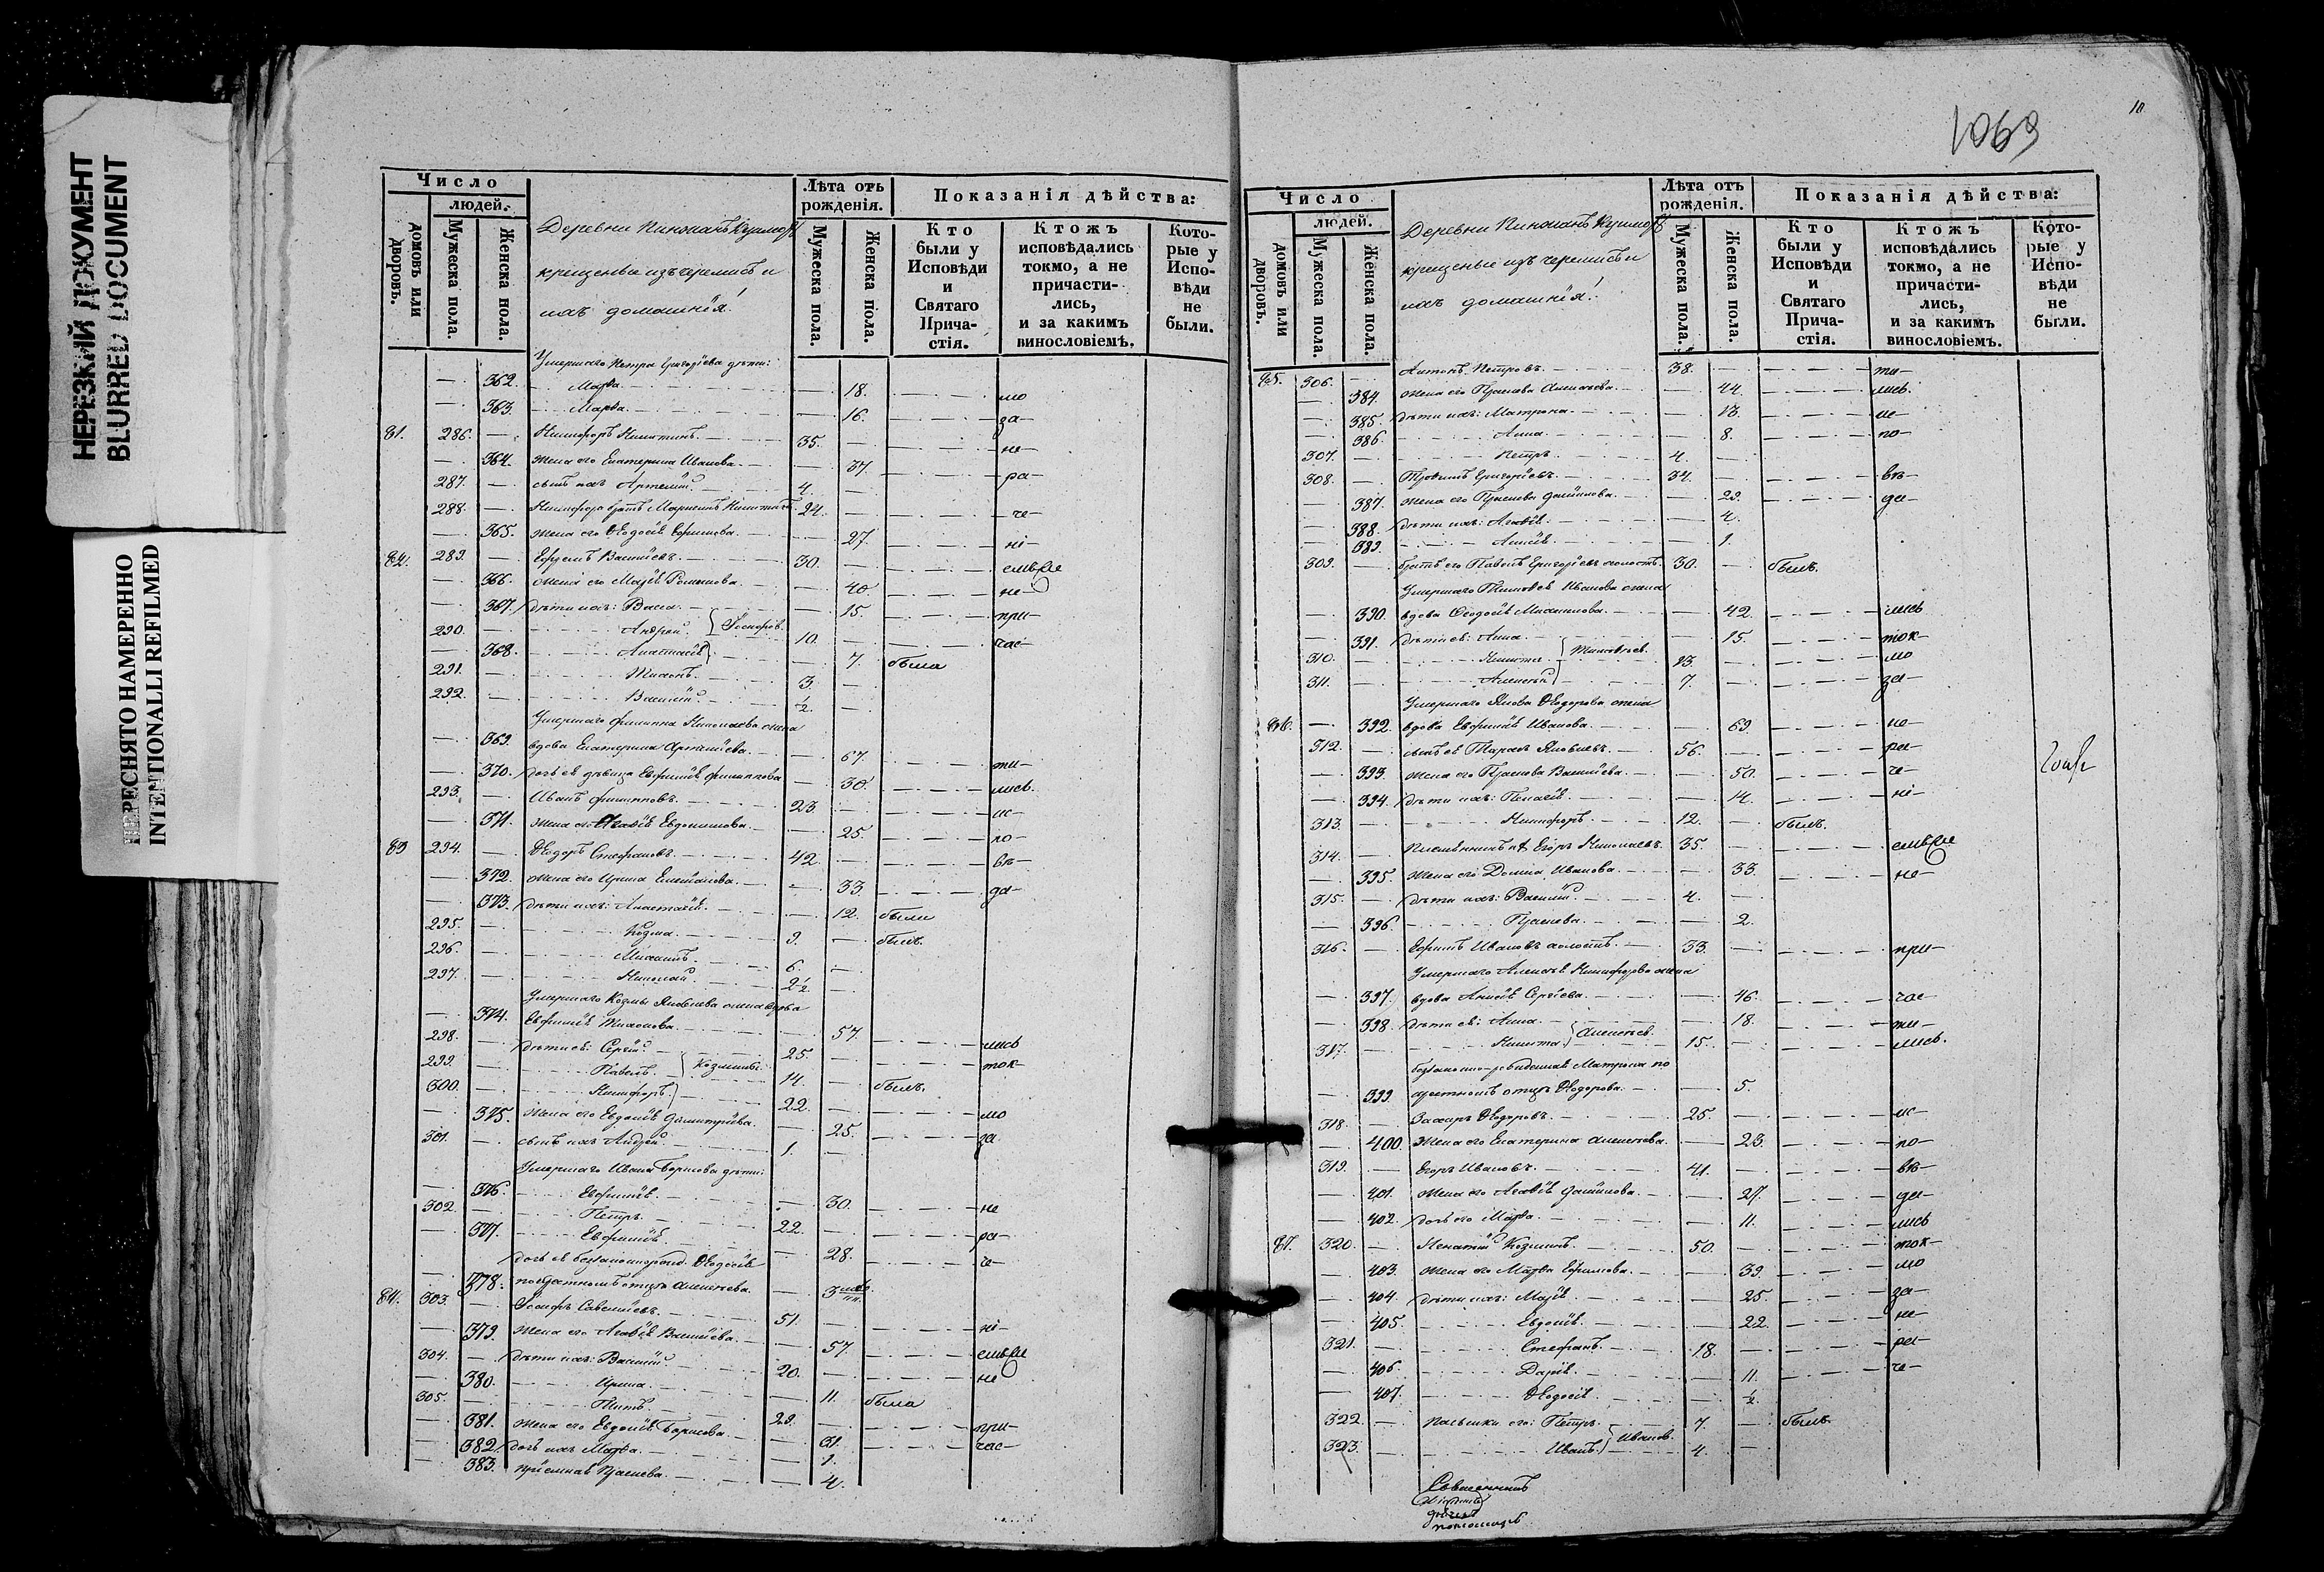 НЕРЕЗКИЙ ДОКУМЕНТ
BLURRED DOCUMENT
ПЕРЕСНЯТО НАМЕРЕННО
INTENTIONALLI REFILMED
Число
людей.
домовъ или дворовъ.
Мужеска пола.
Женска пола.
Деревни
крещеные изъ черемисъ и
ихъ домашнія:
Лѣта отъ рожденія.
Мужеска пола.
Женска пола.
Показанія дѣйства:
Кто были у Исповѣди и Святаго Причастія.
Ктожъ исповѣдались токмо, а не причастились, и за какимъ винословіемъ.
Которые у Исповѣди не были.
Умершаго Петра Григорьева дѣти:
362. Марѳа 18. мо
363. Марѳа 16. за-
81. 286. Никифоръ Никитинъ 35. не-
364. Жена его Екатерина Иванова 37. ра-
287. сынъ ихъ Артемій 4.
288. Никифора братъ Никитинъ 24. че-
365. Жена его Ѳеодосія Ефимова 27. ні-
82. 289. Ефремъ Васильевъ 30. емъ не
366. Жена его Марія 40. не-
367. Дѣти ихъ: Васса 15. при-
290. Андрей 10. час-
368. Анастасія 7. была
291. Тихонъ 3.
292. Василій ½.
Умершаго Филиппа Николаева жена
369. вдова Екатерина 67. ти-
370. дочь ея дѣвица Евфимія Филиппова 30. лись.
293. Иванъ Филипповъ 23. ис-
371. Жена его Агафія Евдокимова 25. по-
83 294. Ѳеодоръ Стефановъ 42. вѣ-
372. Жена его Ирина 33. да-
373. Дѣти ихъ: Анастасія 12. была
295. Козма 9. былъ.
296. Михаилъ 6.
297. Николай 2½
Умершаго Козмы Яковлева жена вдова
374. Евфимія Тихонова 57. лись
298. Дѣти ея: Сергій 25. ток-
299. Павелъ Козмины 14. былъ.
300. Никифоръ 22. мо
375. Жена его Евдокія Димитріева 25. за
301. сынъ ихъ Андрей 1.
Умершаго Ивана Борисова дѣти:
376. Евфимія 30. не
302. Петръ 22. ра-
377. Евфимія 28. че-
дочь ея Ѳеодосія
378. по крестномъ отцѣ Алексѣева 3
84. 303. Іосифъ Савельевъ 51. ні-
379. Жена его Агафія Васильева 57. емъ не
304. Дѣти ихъ: Василій 20. не
380. Ирина 11. была
305. Титъ 29. при-
381. Жена его Евдокія Борисова 31. час-
382. Дочь ихъ Марѳа 1.
383. пріемная Прасковья 4.
10
1069
Число
людей.
домовъ или дворовъ.
Мужеска пола.
Женска пола.
Деревни
крещеные изъ черемисъ и
ихъ домашнія:
Лѣта отъ рожденія.
Мужеска пола.
Женска пола.
Показанія дѣйства:
Кто были у Исповѣди и Святаго Причастія.
Ктожъ исповѣдались токмо, а не причастились, и за какимъ винословіемъ.
Которые у Исповѣди не были.
85. 306. Антонъ Петровъ 38. ти-
384. Жена его Прасковья Алексѣева 44. лись.
385. Дѣти ихъ: Матрона 13. ис-
386. Анна 8. по-
307. Петръ 4.
308. Трофимъ Григорьевъ 34. вѣ-
387. Жена его Прасковья Данилова 29. да-
388. Дѣти ихъ: Агафія 4.
389. 1.
309. братъ его Павелъ Григорьевъ холостъ 30. былъ.
Умершаго Тимоѳея Иванова жена
390. вдова Ѳеодосія Михаилова 42. лись
391. Дѣти ея: Анна 15. ток-
310. Никита Тимоѳеев. 13. мо
311. Алексѣй 7. за-
Умершаго Якова Ѳеодорова жена
86. 392. вдова Евфимія Иванова 69. не-
312. сынъ ея Тарасъ Яковлевъ 56. ра-
393. Жена его Прасковья Васильева 50. че-
394. Дѣти ихъ: Пелагія 14. ні-
313. Никифоръ 12. былъ.
314. Племянникъ Егоръ Николаевъ 35. емъ не
395. Жена его Домна Иванова 33. не-
315. Дѣти ихъ: Василій 4.
396. Прасковья 2.
316. Ефимъ Ивановъ холостъ 33. при-
Умершаго Алексѣя Никифорова жена
397. вдова Анисія Сергіева 46. час-
398. Дѣти ея: Анна 18. ти-
317. Никита Алексѣев. 15. лись.
Матрона по
399. крестномъ отцѣ Ѳеодорова 5.
318. Захаръ Ѳеодоровъ 25. ис-
400. Жена его Екатерина Алексѣева 23. по-
319. Егоръ Ивановъ 41. вѣ-
401. Жена его Агафія Данилова 27. да-
402. Дочь его Марѳа 11. лись
87. 320. Игнатій Козминъ 50. ток-
403. Жена его Марѳа Ефимова 39. мо
404. Дѣти ихъ: Марія 25. за-
405. Евдокія 22. не-
321. Стефанъ 18. ра-
406. Дарія 11. че-
407. Ѳеодосія ½.
322. Пасынки его: Петръ 7. былъ
323. Иванъ Иванов. 4.
Священникъ